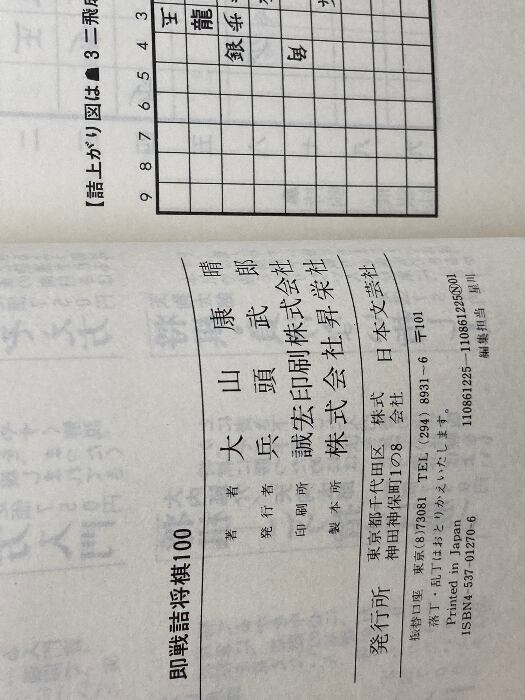 【詰上がり図は☗3二飛成
3
4
5
6
7
8
9
王
龍
銀
角
即戦詰将棋100
著者 大山康晴
発行者 兵頭武郎
印刷所 誠宏印刷株式会社
製本所 株式会社昇栄社
発行所 東京都千代田区神田神保町1の8 株式会社 日本文芸社
振替口座 東京(8)73081 TEL (294) 8931~6 〒101
落丁・乱丁はおとりかえいたします。
Printed in Japan 110861225―110861225Ⓝ01
ISBN4-537-01270-6 編集担当 星川